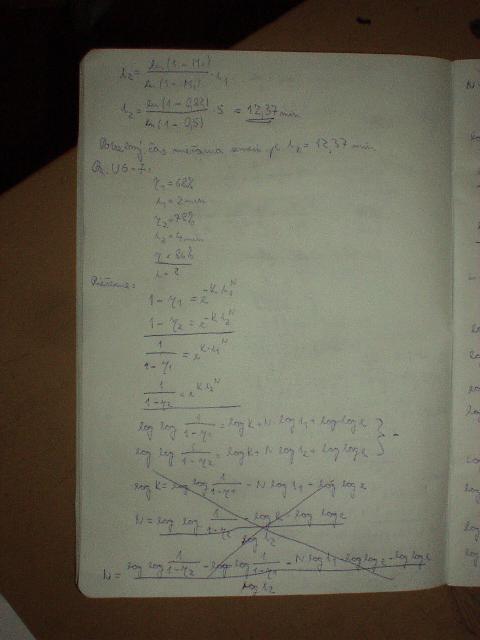 t₂ = ln(1-M₂) / ln(1-M₁) · t₁
t₂ = ln(1-0,82) / ln(1-0,5) · 5 = 12,37 min
Potrebný čas miešania zmesi je t₂ = 12,37 min.
Pr. US-7:
η₁ = 68%
t₁ = 2 min
η₂ = 78%
t₂ = 4 min
η = 86%
t = ?
Riešenie:
1 - η₁ = e^(-K t₁^N)
1 - η₂ = e^(-K t₂^N)
1 / (1-η₁) = e^(K t₁^N)
1 / (1-η₂) = e^(K t₂^N)
log log 1/(1-η₁) = log K + N · log t₁ + log log e
log log 1/(1-η₂) = log K + N log t₂ + log log e } -
log K = log log 1/(1-η₁) - N log t₁ - log log e
N = log log 1/(1-η₂) - log K - log log e / log t₂
N = log log 1/(1-η₂) - log log 1/(1-η₁) - N log t₁ - log log e - log log e / log t₂